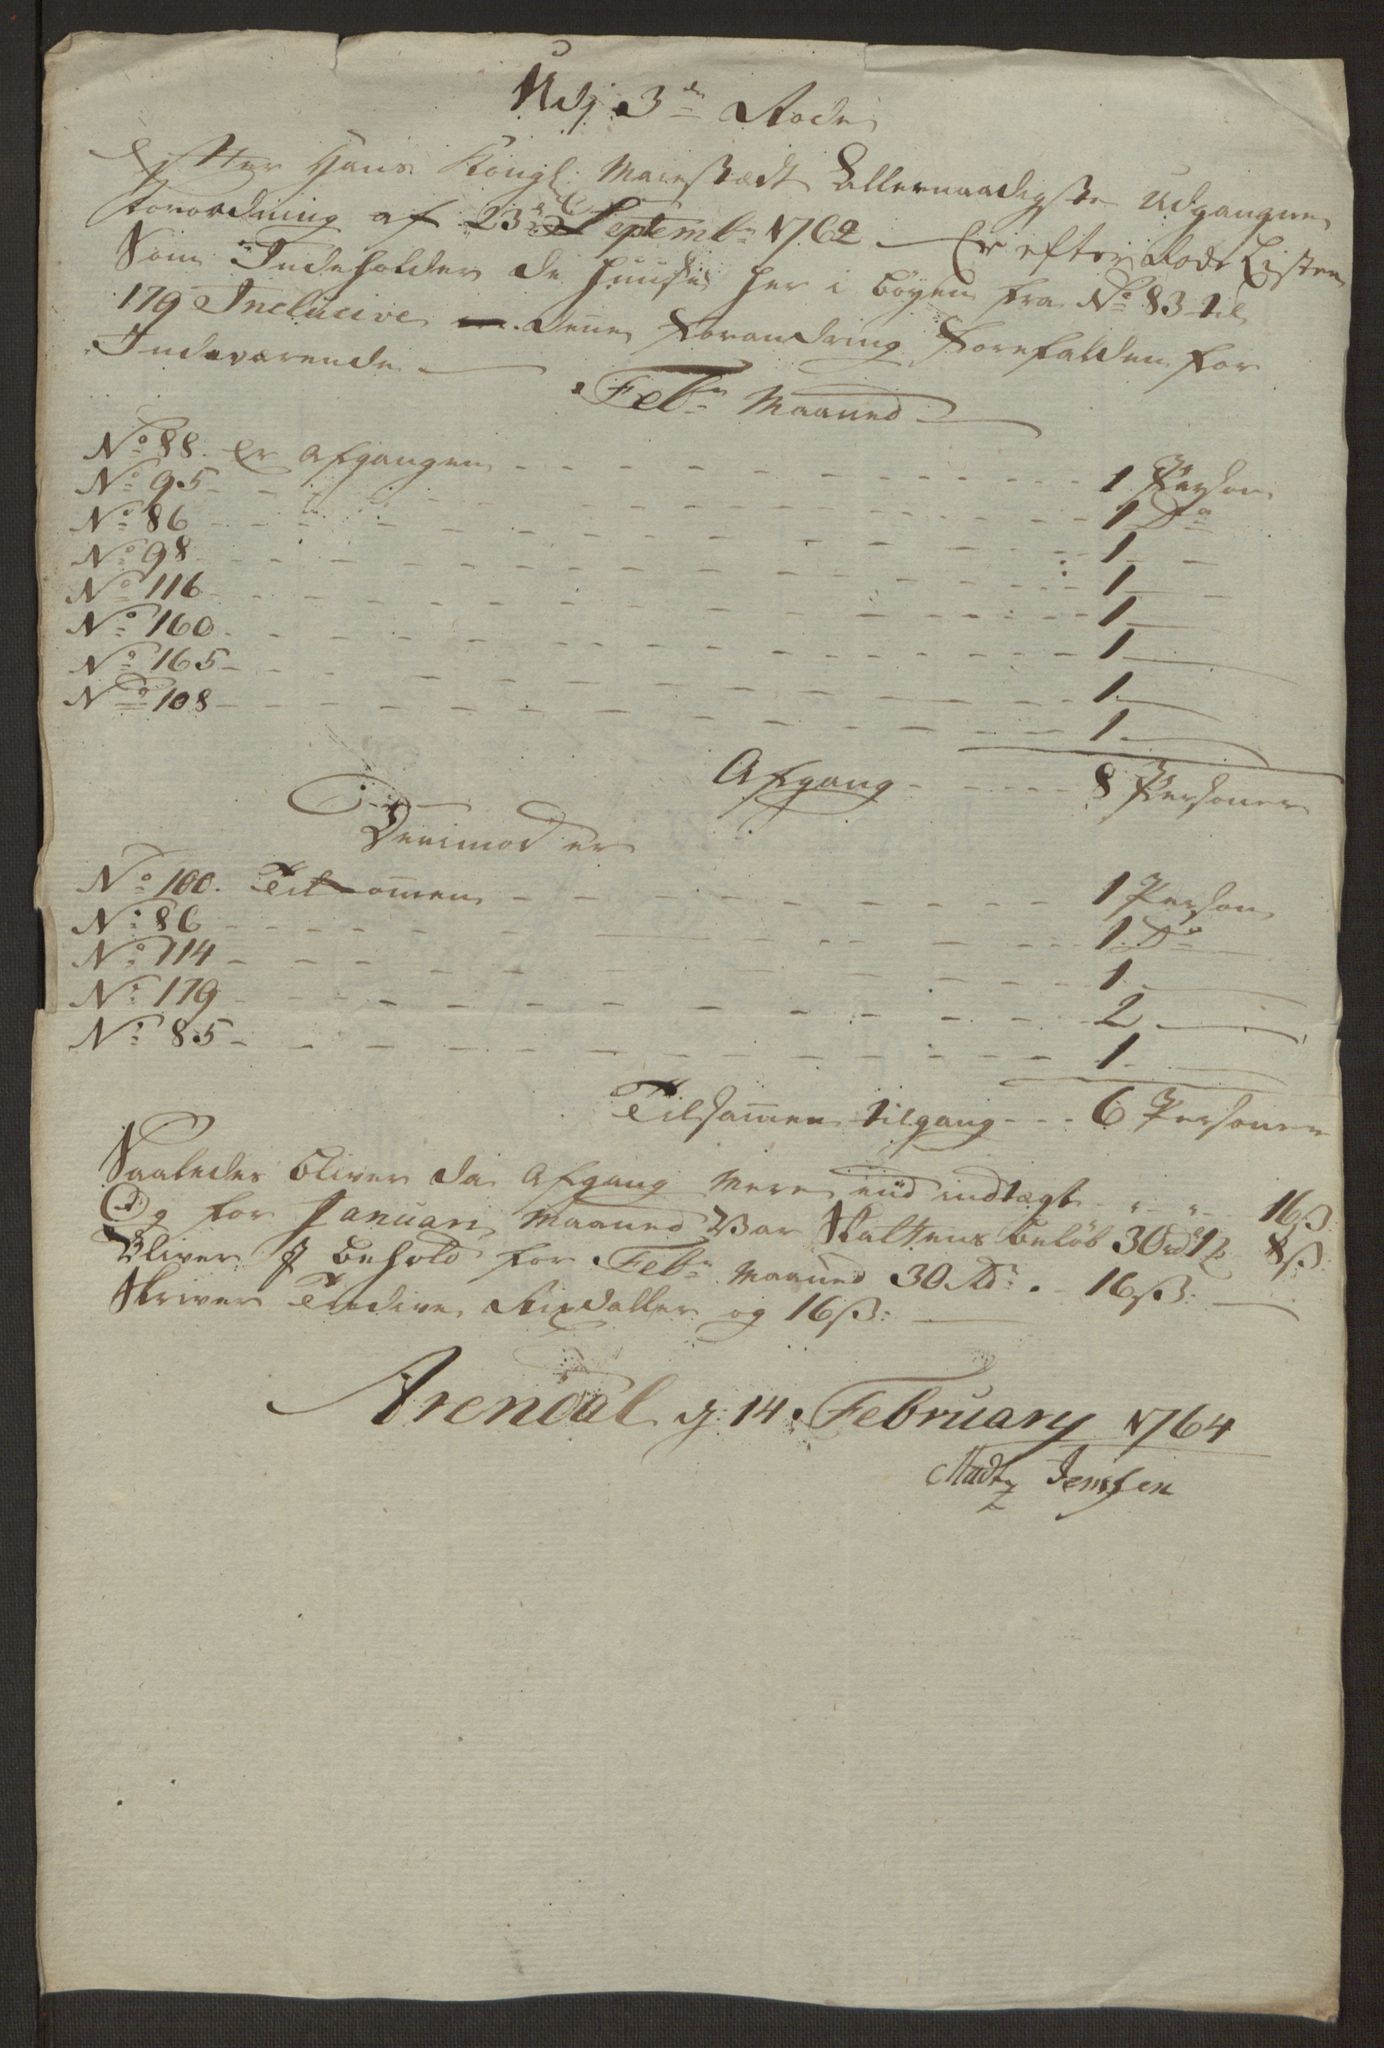 Udj 3de Rode
Efter Hans Kongl: Maiestædt Allernaadigste Udgangne
Forordning af 23de Septembr 1762 Er efter Rode Listen
Som Indeholder de Huuse her i Böyen fra No 83 til
179 Inclucive denne Forandring Forefalden for
Indeværende
Febr Maaned
No 88. Er Afgangen - - - 1 Person
No 95 - - - 1 Do
No 86 - - - 1 -
No 98 - - - 1 -
No 116 - - - 1 -
No 160 - - - 1 -
No 165 - - - 1 -
No 108 - - - 1 -
Afgang - - - 8 Personer
Derimod er
No 100. Tilkommen - - - 1 Person
No 86 - - - 1 Do
No 114 - - - 1 -
No 179 - - - 2 -
No 85 - - - 1 -
Tilsammen tilgang - - - 6 Personer
Saaledes bliver da Afgang mere end indtægt " " 16ß
Og for Januari Maaned Var Skattens Beløb 30rd 1 8ß
Bliver J Behold for Febr Maaned 30 Rdr. - 16ß.
Skriver Tredive Rixdaller og 16ß:
Arendal d: 14. February 1764
Madtz Jensen